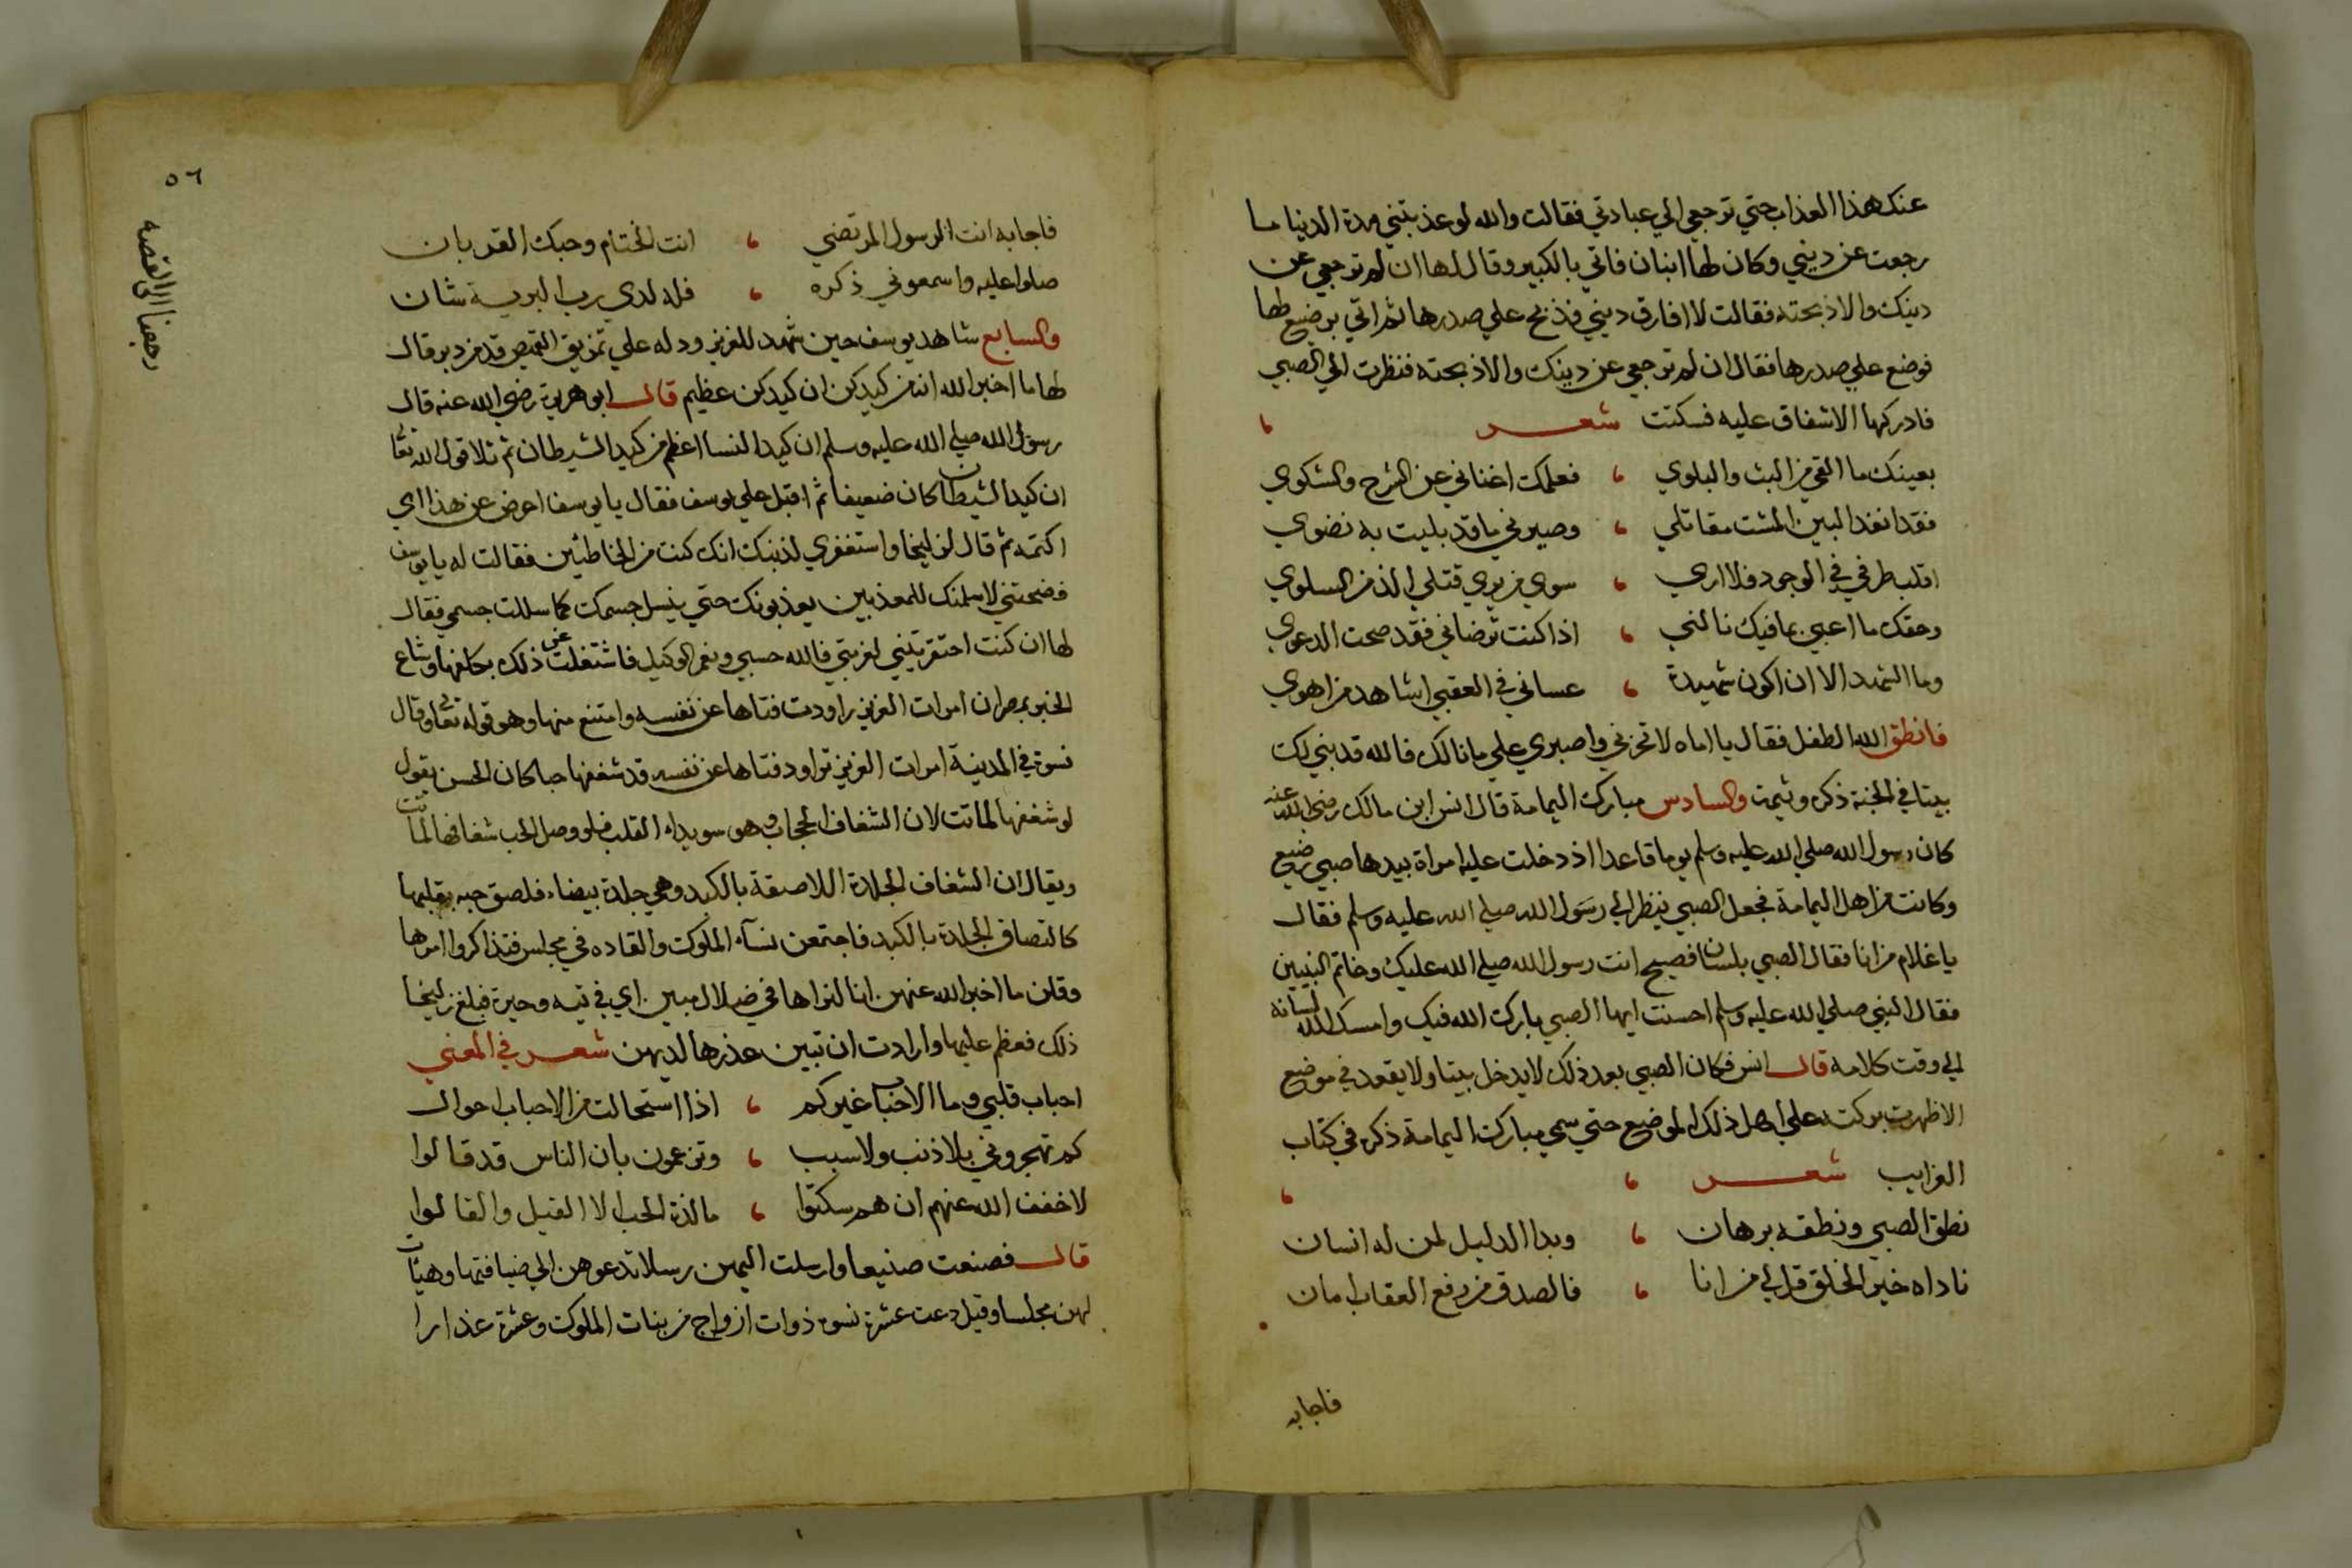 عنك هذا العذاب حتي ترجعي الي عبادتي فقالت والله لو عذبتني مدة الدنيا ما
رجعت عن ديني وكان لها ابنان فاتي بالكبير وقال لها ان لم ترجعي عن
دينك والا ذبحته فقالت لا افارق ديني فذبح علي صدرها ثم اتي برضيع لها
فوضع علي صدرها فقال ان لم ترجعي عن دينك والا ذبحته فنظرت الي الصبي
فادركها الاشفاق عليه فسكتت شعر
بعينك ما القي من البث والبلوي ، فعلمك اغناني عن الشرح والشكوي
فقد انفذ البين المشت مقاتلي ، وصيرني ما قد بليت به نضوي
اقلب طرفي في الوجود فلا اري ، سوي من يري قتلي الذ من السلوي
وحقك ما اعبي بما فيك نالني ، اذا كنت ترضاني فقد صحت الدعوي
وما الشهد الا ان اكون شهيدة ، عساني في العقبي اشاهد من اهوي
فانطق الله الطفل فقال يا اماه لا تحزني واصبري علي ما نالك فالله قد بني لك
بيتا في الجنة ذكره وثيمة والسادس مبارك اليمامة قال انس ابن مالك رضي الله عنه
كان رسول الله صلي الله عليه وسلم يوما قاعدا اذ دخلت عليه امراة بيدها صبي رضيع
وكانت من اهل اليمامة فجعل الصبي ينظر الي رسول الله صلي الله عليه وسلم فقال
يا غلام من انا فقال الصبي بلسان فصيح انت رسول الله صلي الله عليك وخاتم النبيين
فقال النبي صلي الله عليه وسلم احسنت ايها الصبي بارك الله فيك وامسك الله لسانه
الي وقت كلامه قال انس فكان الصبي بعد ذلك لا يدخل بيتا ولا يقعد في موضع
الا ظهرت بركته علي اهل ذلك الموضع حتي سمي مبارك اليمامة ذكره في كتاب
الغرايب شعر
نطق الصبي ونطقه برهان ، وبدا الدليل لمن له انسان
ناداه خير الخلق قل لي من انا ، فالصدق من رفع العقاب امان
فاجابه
٥٦
رجعنا الي القصه
فاجابه انت الرسول المرتضي ، انت الختام وحبك القربان
صلوا عليه واسمعوني ذكره ، فله لدي رب البرية شان
والسابع شاهد يوسف حين شهد للعزيز ودله علي تمزيق القميص قد من دبر قال
لها ما اخبر الله انه من كيدكن ان كيدكن عظيم قال ابو هريرة رضي الله عنه قال
رسول الله صلي الله عليه وسلم ان كيد النسا اعظم من كيد الشيطان ثم تلا قول الله تعا
ان كيد الشيطان كان ضعيفا ثم اقبل علي يوسف فقال يا يوسف اعرض عن هذا اي
اكتمه ثم قال لزليخا واستغفري لذنبك انك كنت من الخاطئين فقالت له يا يوسف
فضحتني لاسلمنك للمعذبين يعذبونك حتي ينسل جسمك كما سللت جسمي فقال
لها ان كنت احتقرتيني لغربتي فالله حسبي ونعم الوكيل فاشتغلت عن ذلك بكلفها وشاع
الخبر بمصر ان امرات العزيز راودت فتاها عن نفسه وامتنع منها وهو قوله تعا وقال
نسوة في المدينة امرات العزيز تراود فتاها عن نفسه قد شغفها حبا كان الحسن يقول
لو شغفها لماتت لان الشغاف الحجاب وهو سويداء القلب فلو وصل الحب شغافها لماتت
ويقال ان الشغاف الجلدة اللاصقة بالكبد وهي جلدة بيضاء فلصق حبه بقلبها
كالتصاق الجلدة بالكبد فاجتمعن نسآء الملوك والقاده في مجلس فتذاكروا امرها
وقلن ما اخبر الله عنهن انا لنراها في ضلال مبين اي في تيه وحيرة فبلغ زليخا
ذلك فعظم عليها وارادت ان تبين عذرها لديهن شعر في المعني
احباب قلبي وما الاحباب غيركم ، اذا استحالت من الاحباب احوال
كم تهجروني بلا ذنب ولا سبب ، وتزعمون بان الناس قد قالوا
لا خفف الله عنهم ان هم سكتوا ، ما لذة الحب الا القيل والقالوا
قال فصنعت صنيعا وارسلت اليهن رسلا تدعوهن الي ضيافتها وهيأت
لهن مجلسا وقيل دعت عشرة نسوة ذوات ازواج من بنات الملوك وعشرة عذارا